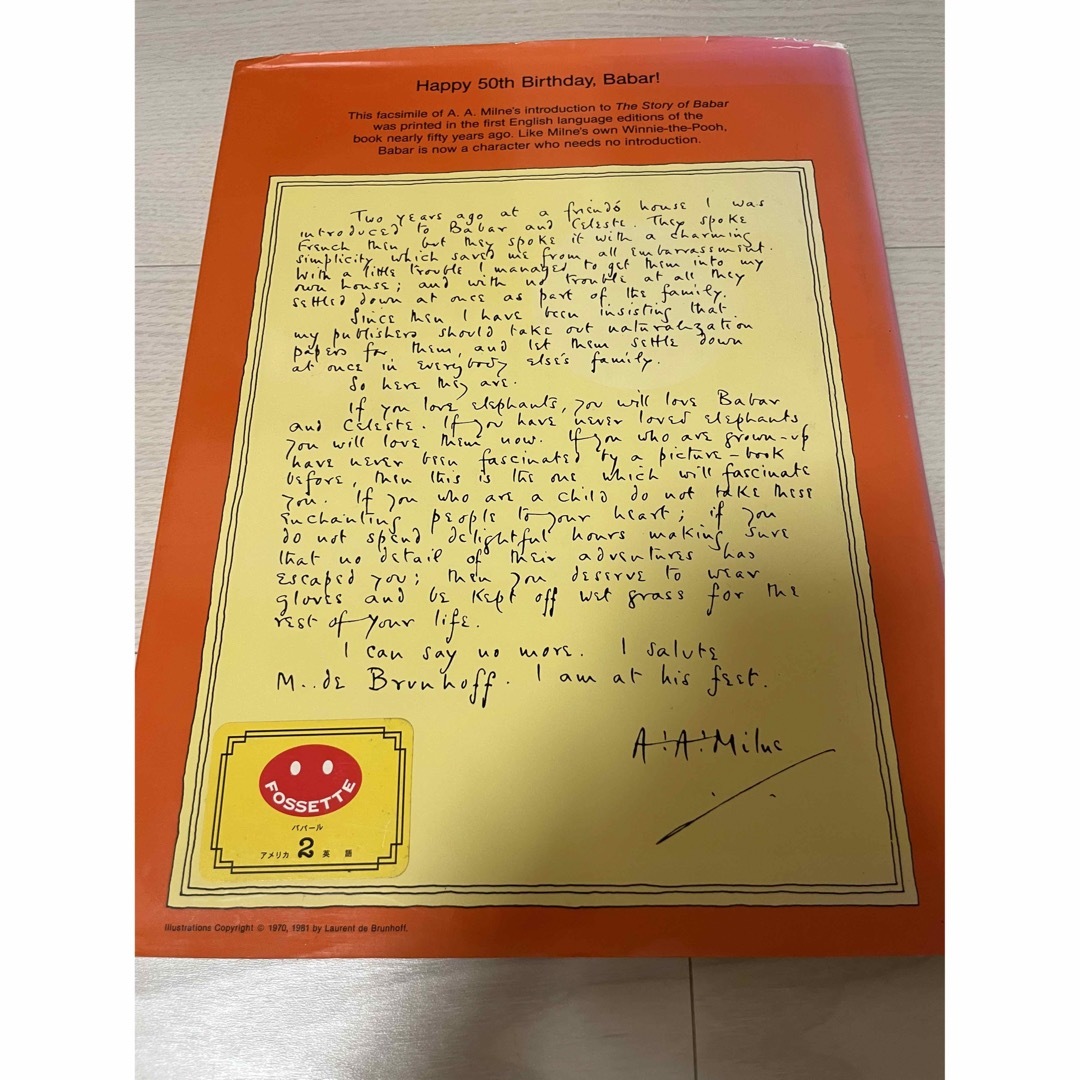 Happy 50th Birthday, Babar!
This facsimile of A. A. Milne's introduction to The Story of Babar
was printed in the first English language editions of the
book nearly fifty years ago. Like Milne's own Winnie-the-Pooh,
Babar is now a character who needs no introduction.
Two years ago at a friend's house I was
introduced to Babar and Celeste. They spoke
French then but they spoke it with a charming
simplicity which saved me from all embarrassment.
With a little trouble I managed to get them into my
own house; and with no trouble at all they
settled down at once as part of the family.
Since then I have been insisting that
my publishers should take out naturalization
papers for them, and let them settle down
at once in everybody else's family.
So here they are.
If you love elephants, you will love Babar
and Celeste. If you have never loved elephants
you will love them now. If you who are grown-up
have never been fascinated by a picture-book
before, then this is the one which will fascinate
you. If you who are a child do not take these
enchanting people to your heart; if you
do not spend delightful hours making sure
that no detail of their adventures has
escaped you; then you deserve to wear
gloves and be kept off wet grass for the
rest of your life.
I can say no more. I salute
M. de Brunhoff. I am at his feet.
A. A. Milne
FOSSETTE
ババール
アメリカ 2 英語
Illustrations Copyright © 1970, 1981 by Laurent de Brunhoff.